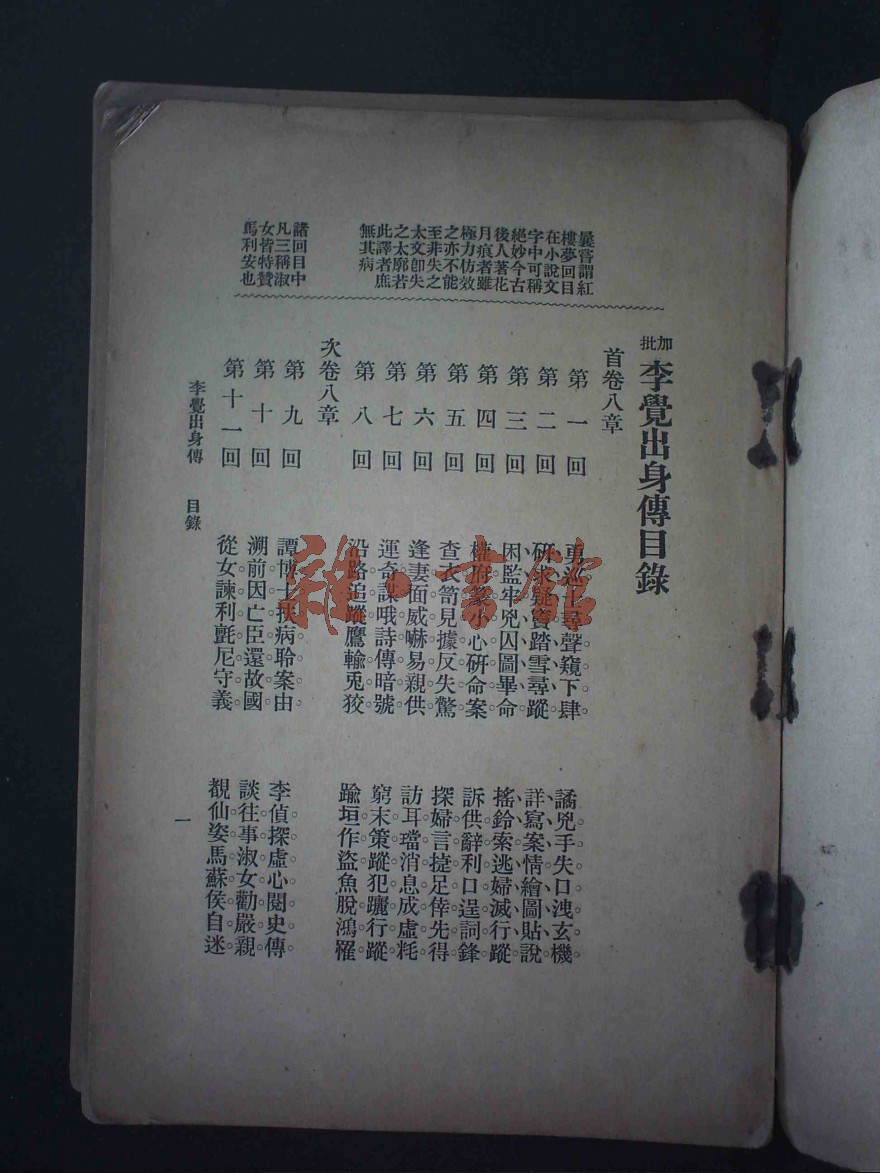 曩嘗謂紅
樓夢回目
在小說文
字中可稱
絕妙今古
後人著花
月痕者雖
極力仿效
之亦不能
至非失之
太文卽失
之太廓若
此譯者庶
無其病
諸回目中
凡三稱淑
女皆特贊
馬利安也
加批 李覺出身傳目錄
首卷八章
第一回 勇巡士尋聲窺下肆 譎兇手失口洩玄機
第二回 研求疑竇踏雪尋蹤 詳寫案情繪圖貼說
第三回 困監牢兇囚圖畢命 搖鈴索逃婦滅行蹤
第四回 權府篆小心硏命案 訴供辭利口逞詞鋒
第五回 查衣笥見據反失驚 探婦言捷足倖先得
第六回 逢妻面威嚇易親供 訪耳璫消息成虛耗
第七回 運奇謀哦詩傳暗號 窮末策蹤犯躧行蹤
第八回 沿路追蹤鷹輸兎狡 踰垣作盜魚脫鴻罹
次卷八章
第九回 譚博士扶病聆案由 李偵探虛心閱史傳
第十回 溯前因亡臣還故國 談往事淑女勸嚴親
第十一回 從女諫利氈尼守義 覩仙姿馬蘇侯自迷
李覺出身傳 目錄
一
雜·書館